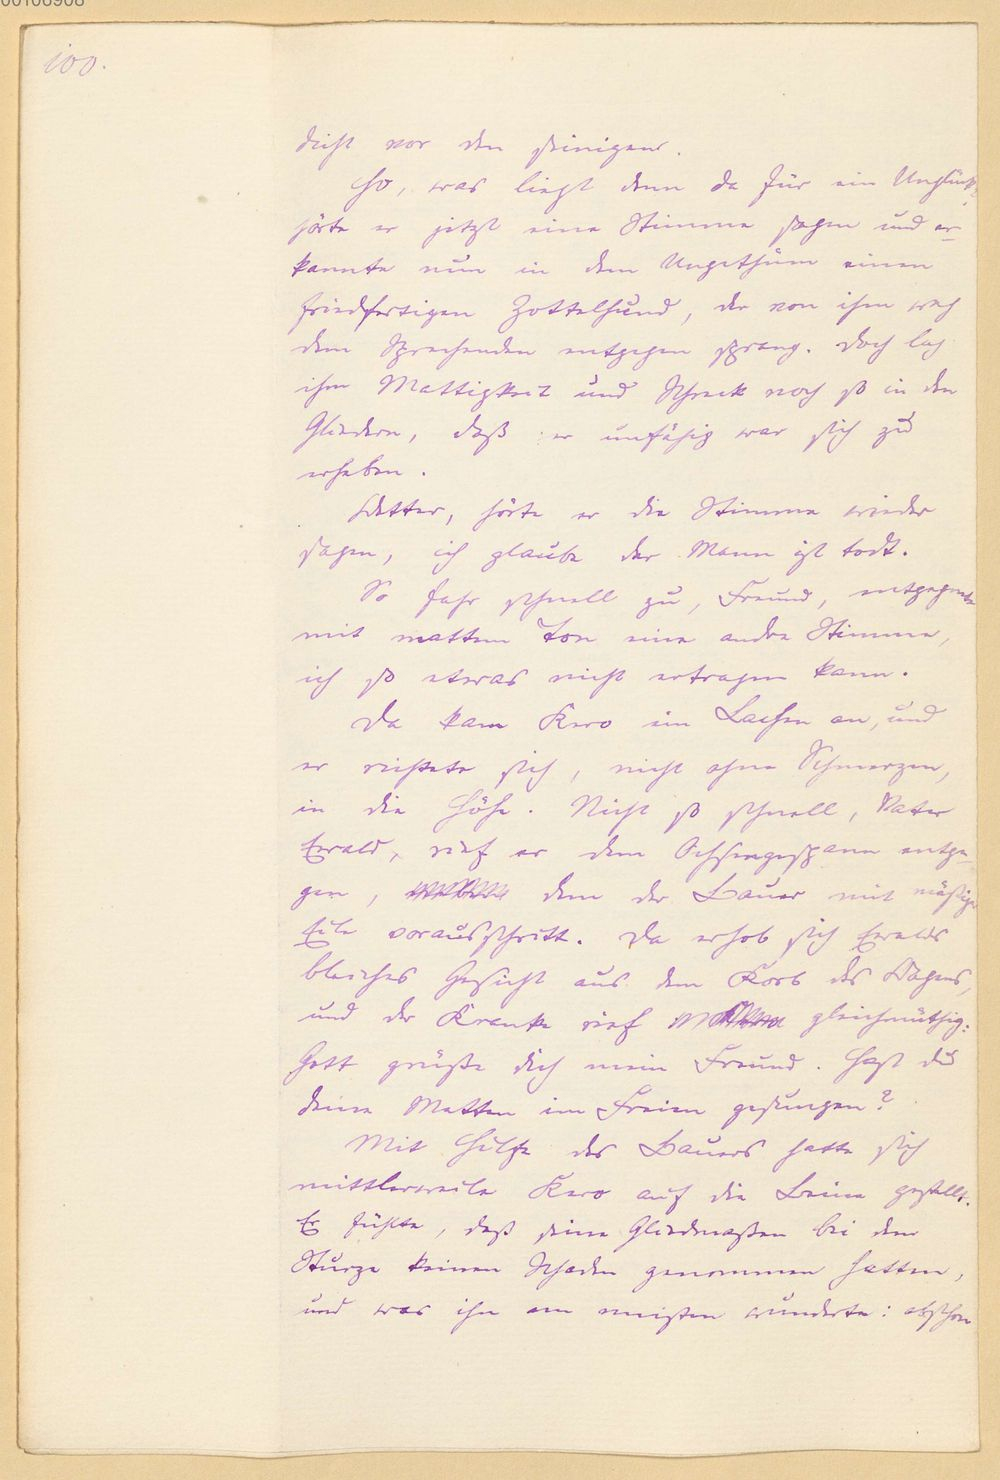 00106908
100.
dicht vor den seinigen.
Ho, was liegt denn da für ein Unglück?
hörte er jetzt eine Stimme sagen und er-
kannte nun in dem Ungethüm einen
friedfertigen Zottelhund, der von ihm weg
dem Sprechenden entgegen sprang. Doch lag
ihm Mattigkeit und Schreck noch so in den
Gliedern, daß er unfähig war sich zu
erheben.
Vetter, hörte er die Stimme wieder
sagen, ich glaube der Mann ist todt.
So fahr schnell zu, Freund, entgegnete
mit mattem Ton eine andre Stimme,
ich so etwas nicht ertragen kann.
Da kam Kero ein Lachen an, und
er richtete sich, nicht ohne Schmerzen,
in die Höhe. Nicht so schnell, Vater
Ewald, rief er dem Ochsengespann entge-
gen, dem der Bauer mit mäßiger
Eile vorausschritt. Da erhob sich Ewalds
bleiches Gesicht aus dem Korb des Wagens,
und der Kranke rief gleichmüthig:
Gott grüße dich mein Freund. Hast du
deine Metten im Freien gesungen?
Mit Hülfe des Bauers hatte sich
mittlerweile Kero auf die Beine gestellt.
Er fühlte, daß seine Gliedmaßen bei dem
Sturze keinen Schaden genommen hatten,
und was ihn am meisten wunderte: obschon